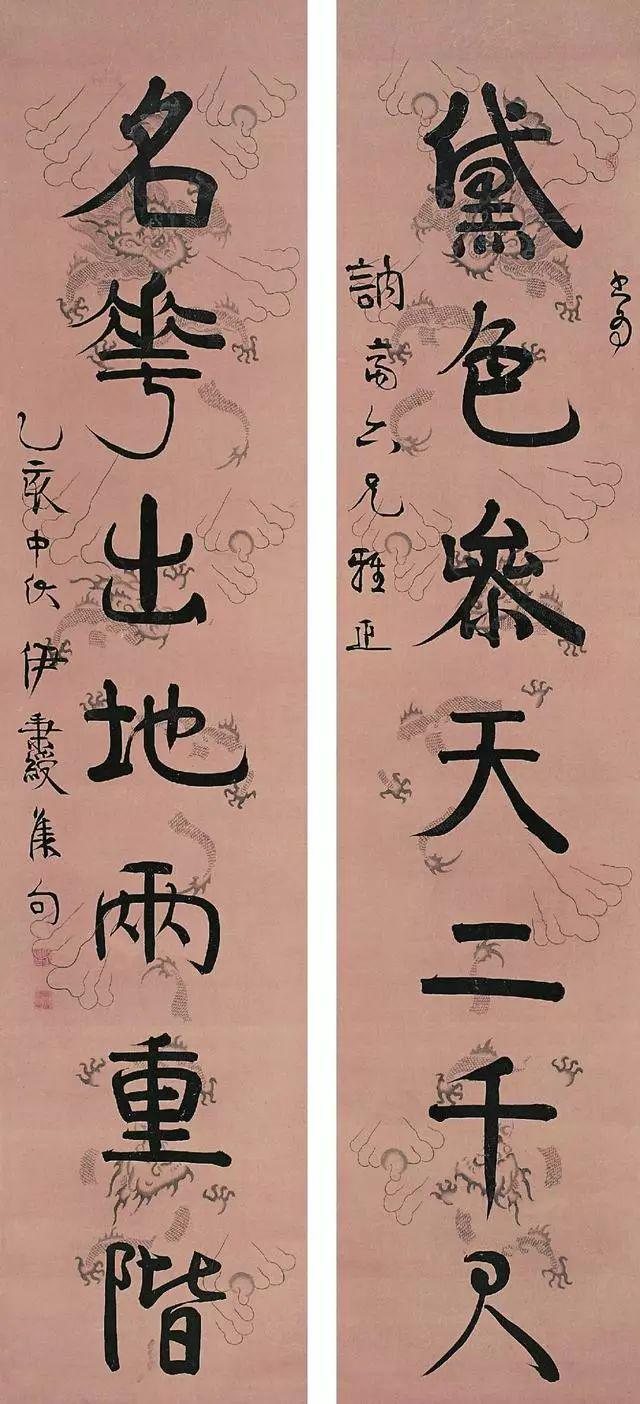 書為
黛色參天二千尺
訥齋六兄雅正
名華出地兩重階
乙亥中伏伊秉綬集句